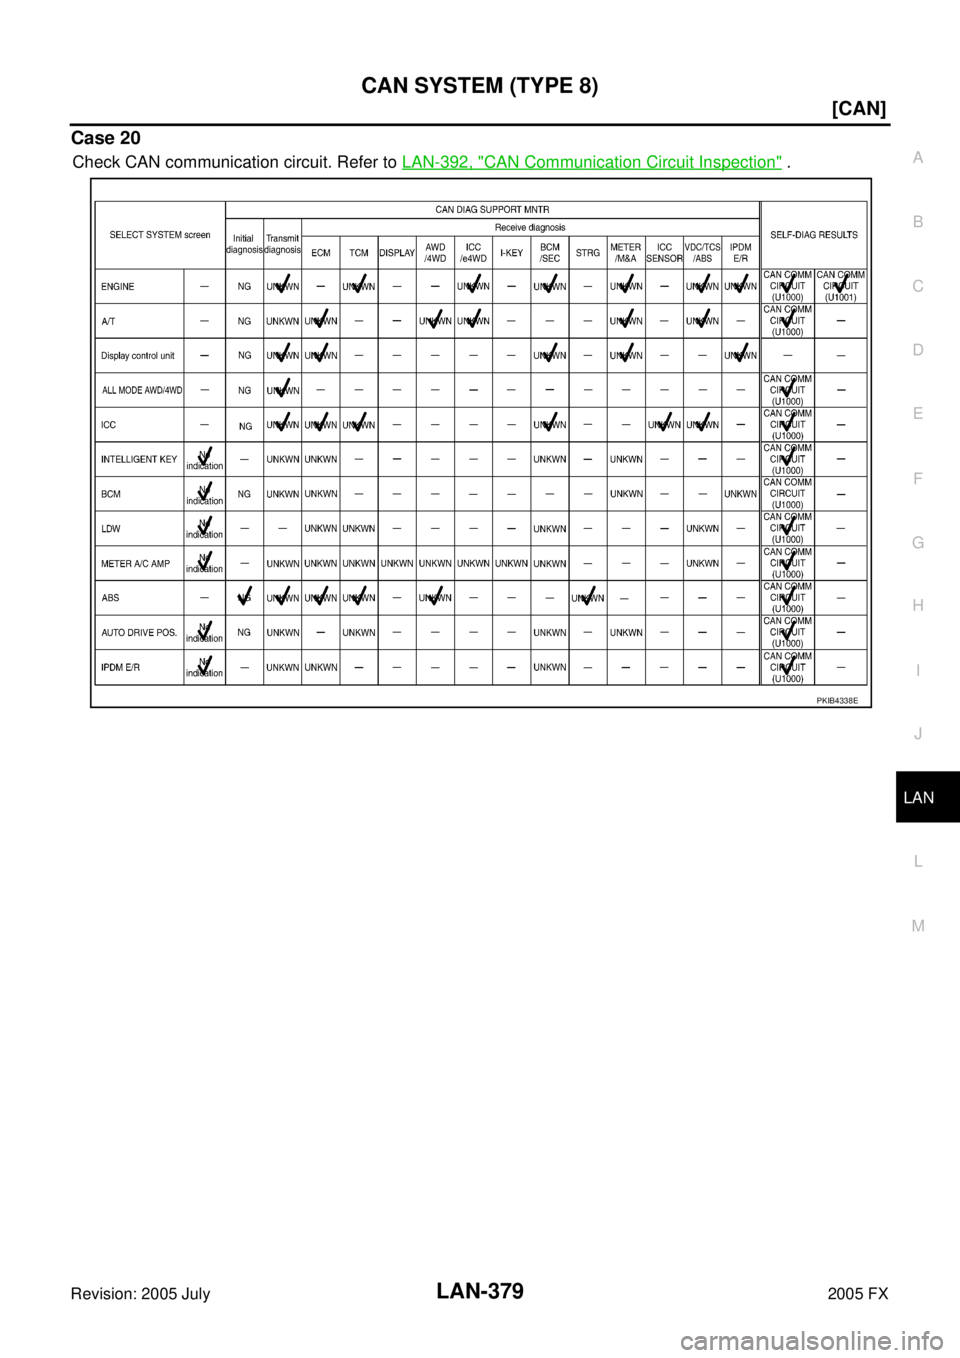 CAN SYSTEM (TYPE 8)
[CAN]
Case 20
Check CAN communication circuit. Refer to LAN-392, "CAN Communication Circuit Inspection" .
SELECT SYSTEM screen
CAN DIAG SUPPORT MNTR
Initial diagnosis
Transmit diagnosis
Receive diagnosis
ECM TCM DISPLAY AWD /4WD ICC /e4WD I-KEY BCM /SEC STRG METER /M&A ICC SENSOR VDC/TCS /ABS IPDM E/R
SELF-DIAG RESULTS
ENGINE — NG UNKWN — UNKWN — — UNKWN — UNKWN — UNKWN — UNKWN UNKWN CAN COMM CIRCUIT (U1000) CAN COMM CIRCUIT (U1001)
A/T — NG UNKWN UNKWN — — UNKWN UNKWN — — — UNKWN — UNKWN — CAN COMM CIRCUIT (U1000) —
Display control unit — NG UNKWN UNKWN — — — — — UNKWN — UNKWN — — UNKWN — —
ALL MODE AWD/4WD — NG UNKWN — — — — — — — — — — — — CAN COMM CIRCUIT (U1000) —
ICC — NG UNKWN UNKWN UNKWN — — — — UNKWN — — UNKWN UNKWN — CAN COMM CIRCUIT (U1000) —
INTELLIGENT KEY No indication — UNKWN UNKWN — — — — — UNKWN — UNKWN — — — CAN COMM CIRCUIT (U1000) —
BCM No indication NG UNKWN UNKWN — — — — — — — UNKWN — — UNKWN CAN COMM CIRCUIT (U1000) —
LDW No indication — — UNKWN UNKWN — — — — UNKWN — — — UNKWN — CAN COMM CIRCUIT (U1000) —
METER A/C AMP No indication — UNKWN UNKWN UNKWN UNKWN UNKWN UNKWN UNKWN UNKWN — — — UNKWN — CAN COMM CIRCUIT (U1000) —
ABS — NG UNKWN UNKWN UNKWN — UNKWN — — — UNKWN — — — — CAN COMM CIRCUIT (U1000) —
AUTO DRIVE POS. No indication NG UNKWN — UNKWN — — — — UNKWN — UNKWN — — — CAN COMM CIRCUIT (U1000) —
IPDM E/R No indication — UNKWN UNKWN — — — — — UNKWN — — — — — CAN COMM CIRCUIT (U1000) —
PKIB4338E
A
B
C
D
E
F
G
H
I
J
LAN
L
M
Revision: 2005 July
LAN-379
2005 FX
carmanualsonline.info